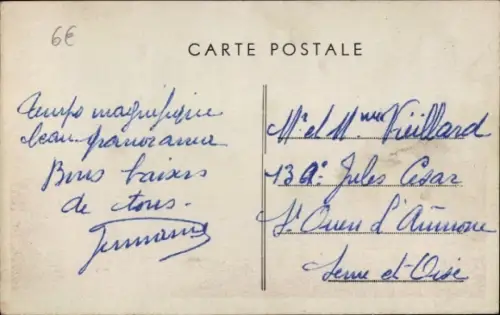 6€
CARTE POSTALE
temps magnifique
beau panorama
Bons baisers
de tous.
Germaine
Mr et Mme Vieillard
13 Jules Cesar
St Ouen l'Aumone
Seine et-Oise